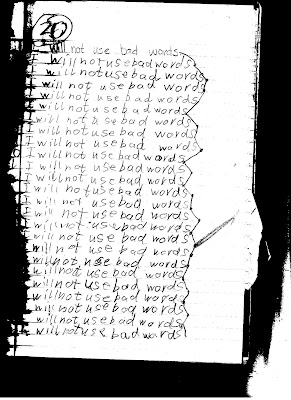 will not use bad words
will not use bad words
will not use bad words
will not use bad words
will not use bad words
will not use bad words
will not use bad words
will not use bad words
will not use bad words
will not use bad words
will not use bad words
will not use bad words
will not use bad words
will not use bad words
will not use bad words
will not use bad words
will not use bad words
will not use bad words
will not use bad words
will not use bad words
will not use bad words
will not use bad words
will not use bad words
will not use bad words
will not use bad words